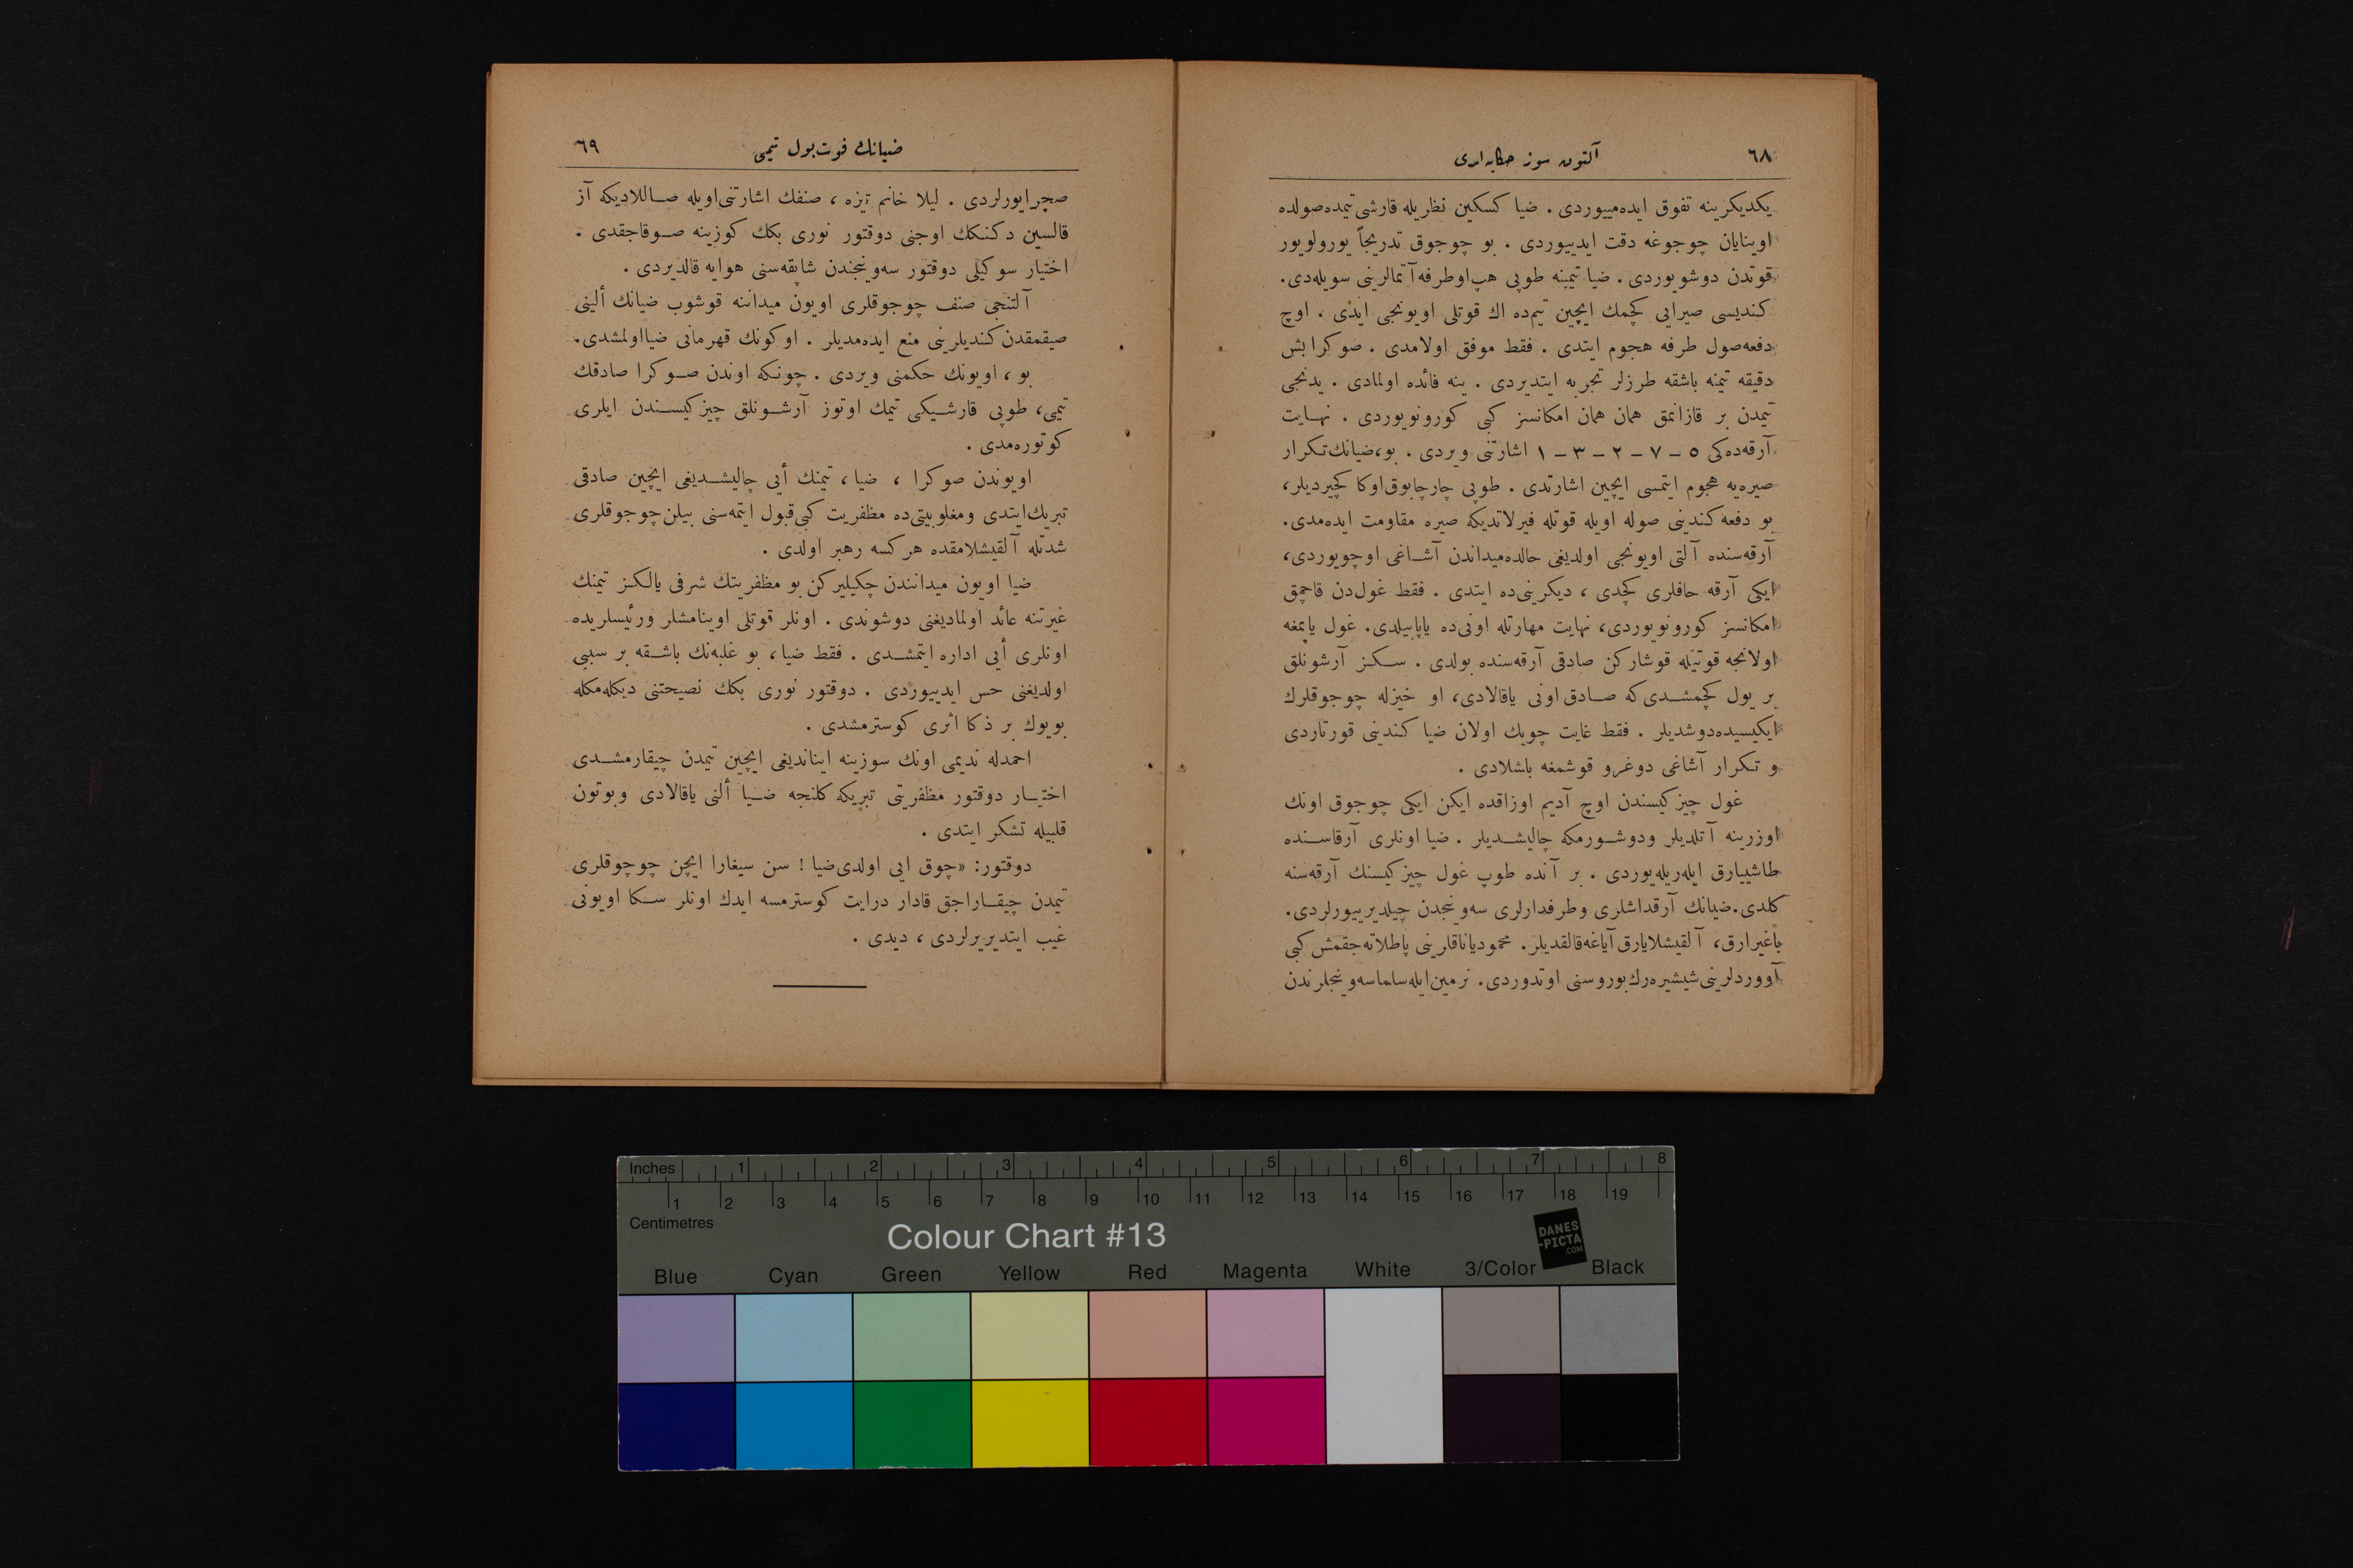 ٦٨
آلتون سوز حكایه‌لری
یكدیكرینه تفوق ایده‌مییوردی . ضیا كسكین نظریله قارشی تیمده صولده
اوینایان چوجوغه دقت ایدییوردی . بو چوجوق تدریجاً یورولویور
قوتدن دوشویوردی . ضیا تیمینه طوپی هپ اوطرفه آتمالرینی سویله‌دی.
كندیسی صیرایی كچمك ایچین تیم‌ده اك قوتلی اویونجی ایدی . اوچ
دفعه صول طرفه هجوم ایتدی . فقط موفق اولامدی . صوكرا بش
دقیقه تیمنه باشقه طرزلر تجربه ایتدیردی . ینه فائده اولمادی . یدنجی
تیمدن بر قازانمق همان همان امكانسز كبی كورونویوردی . نهایت
آرقه‌ده‌كی ٥ – ٧ – ٢ – ٣ – ١ اشارتنی ویردی . بو، ضیانك تكرار
صیره‌یه هجوم ایتمسی ایچین اشارتدی . طوپی چارچابوق اوكا كچیردیلر،
بو دفعه كندینی صوله اویله قوتله فیرلاتدیكه صیره مقاومت ایده‌مدی.
آرقه‌سنده آلتی اویونجی اولدیغی حالده میداندن آشاغی اوچویوردی،
ایكی آرقه حافلری كچدی ، دیكرینی‌ده ایتدی . فقط غول‌دن قاچمق
امكانسز كورونویوردی، نهایت مهارتله اونی‌ده یاپابیلدی. غول یاپمغه
اولانجه قوتیله قوشاركن صادقی آرقه‌سنده بولدی . سكز آرشونلق
بر یول كچمشدی كه صادق اونی یاقالادی، او خیزله چوجوقلرك
ایكیسیده دوشدیلر . فقط غایت چویك اولان ضیا كندینی قورتاردی
و تكرار آشاغی دوغرو قوشمغه باشلادی .
غول چیزكیسندن اوچ آدیم اوزاقده ایكن ایكی چوجوق اونك
اوزرینه آتلدیلر ودوشورمكه چالیشدیلر . ضیا اونلری آرقاسنده
طاشییارق ایله‌ریله‌یوردی . بر آنده طوپ غول چیزكیسنك آرقه‌سنه
كلدی. ضیانك آرقداشلری وطرفدارلری سه‌وینجدن چیلدیرییورلردی.
باغیرارق، آلقیشلایارق آیاغه قالقدیلر. محمود یاناقلرینی پاطلاته‌جقمش كبی
آووردلرینی شیشیره‌رك بوروسنی اوتدوردی. نرمین ایله سلما سه‌وینجلرندن
ضیانك فوت بول تیمی
٦٩
صچرایورلردی . لیلا خانم تیزه ، صنفك اشارتنی اویله صاللادیكه آز
قالسین دكنكك اوجنی دوقتور نوری بكك كوزینه صوقاجقدی .
اختیار سوكیلی دوقتور سه‌وینجندن شاپقه‌سنی هوایه قالدیردی .
آلتنجی صنف چوجوقلری اویون میداننه قوشوب ضیانك ألینی
صیقمقدن كندیلرینی منع ایده‌مدیلر . اوكونك قهرمانی ضیا اولمشدی.
بو ، اویونك حكمنی ویردی . چونكه اوندن صوكرا صادقك
تیمی، طوپی قارشیكی تیمك اوتوز آرشونلق چیزكیسندن ایلری
كوتوره‌مدی .
اویوندن صوكرا ، ضیا، تیمنك أیی چالیشدیغی ایچین صادقی
تبریك ایتدی ومغلوبیتی‌ده مظفریت كبی قبول ایتمه‌سنی بیلن چوجوقلری
شدتله آلقیشلامقده هركسه رهبر اولدی .
ضیا اویون میدانندن چكیلیركن بو مظفریتك شرفی یالكز تیمنك
غیرتنه عائد اولمادیغنی دوشوندی . اونلر قوتلی اوینامشلر ورئیسلریده
اونلری أیی اداره ایتمشدی . فقط ضیا، بو غلبه‌نك باشقه بر سببی
اولدیغنی حس ایدییوردی . دوقتور نوری بكك نصیحتنی دیكله‌مكله
بویوك بر ذكا اثری كوسترمشدی .
احمدله ندیمی اونك سوزینه ایناندیغی ایچین تیمدن چیقارمشدی
اختیار دوقتور مظفریتی تبریكه كلنجه ضیا ألنی یاقالادی وبوتون
قلبیله تشكر ایتدی .
دوقتور: «چوق ایی اولدی ضیا ! سن سیغارا ایچن چوچوقلری
تیمدن چیقاراجق قادار درایت كوسترمسه ایدك اونلر سكا اویونی
غیب ایتدیریرلردی ، دیدی .
Inches 1 2 3 4 5 6 7 8
1 2 3 4 5 6 7 8 9 10 11 12 13 14 15 16 17 18 19
Centimetres
Colour Chart #13
DANES
-PICTA
.COM
Blue Cyan Green Yellow Red Magenta White 3/Color Black